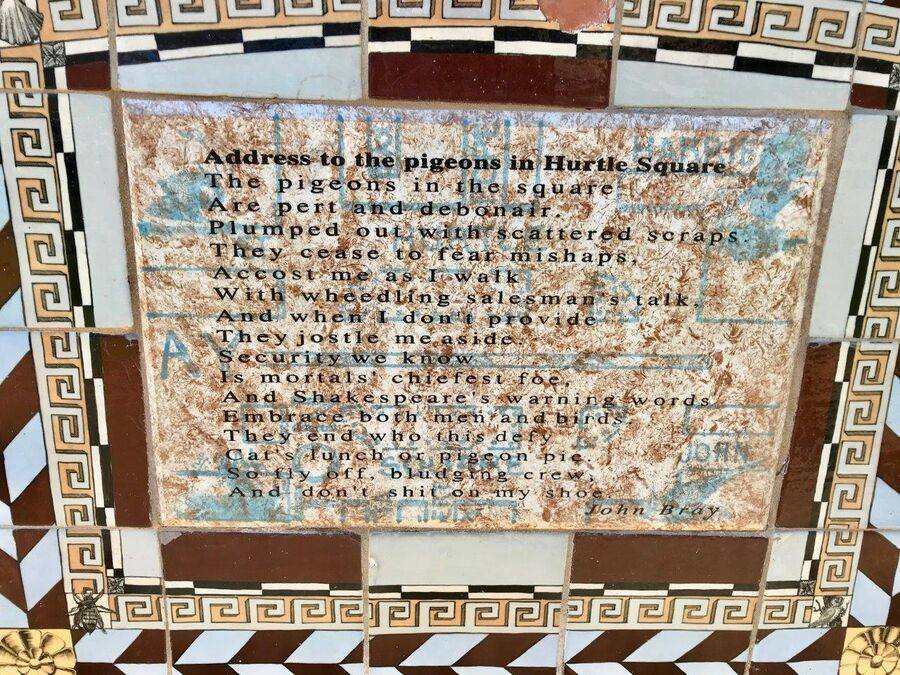 Address to the pigeons in Hurtle Square
The pigeons in the square
Are pert and debonair.
Plumped out with scattered scraps.
They cease to fear mishaps,
Accost me as I walk
With wheedling salesman's talk,
And when I don't provide
They jostle me aside.
Security we know
Is mortals' chiefest foe,
And Shakespeare's warning words
Embrace both men and birds.
They end who this defy
Cat's lunch or pigeon pie.
So fly off, bludging crew,
And don't shit on my shoe.
John Bray
JOHN